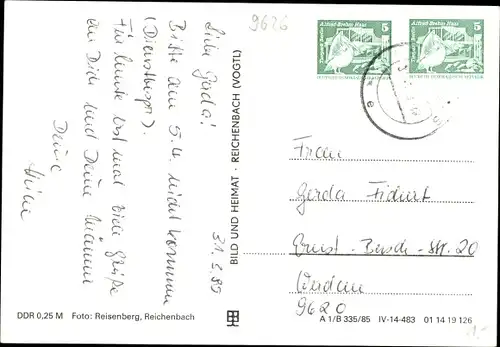 9626
Liebe Gerda!
31.3.89
Bitte am 5.4. nicht kommen
(Dienstbespr.).
Für heute erst mal viele Grüße
an Dich und Deine Männer
Deine
BILD UND HEIMAT · REICHENBACH (VOGTL)
Alfred-Brehm-Haus
5
Alfred-Brehm-Haus
5
Frau
Gerda
Ernst-Busch-Str. 20
Werdau
9620
DDR 0,25 M Foto: Reisenberg, Reichenbach
A 1/B 335/85 IV-14-483 01 14 19 126
1.-